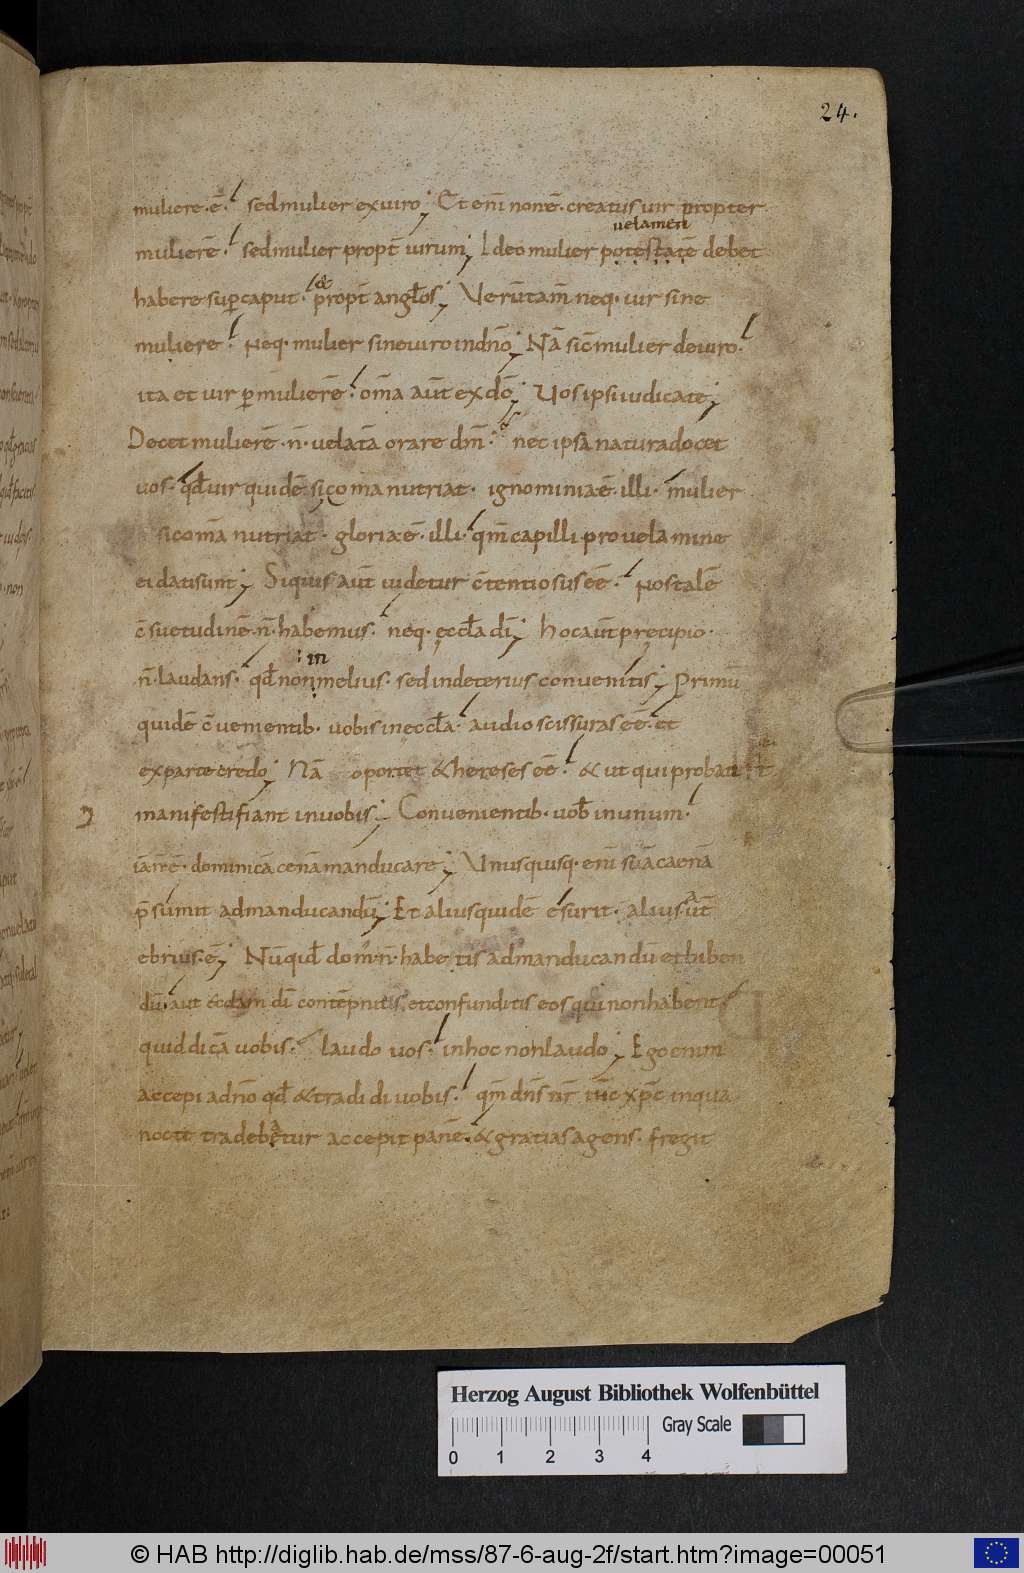 24.
muliere·ē· sed mulier ex viro; Et eni͞ non ē· creatus uir propter
uelamen
mulierē· sed mulier propt̄ uirum; Ideo mulier potestatē debet
&
habere sup̱ caput· propt̄ angłos; Verūtam̄ neq· uir sine
muliere· neq· mulier sine uiro in dn̄o; Nā sic̄ mulier de uiro·
ita et uir p̱ mulierē· om̄a aūt ex dō; Uos ipsi iudicate;
Decet mulierē·n̄· uelatā orare dm̄· nec ipsa natura docet
uos· qđ uir quidē si coma nutriat· ignominia ē·illi· mulier
si comā nutriat· gloria ē·illi· qm̄ capilli pro uelamine
ei dati sunt; Siquis aūt uidetur c̄tentiosus eē· nos talē
c̄suetudinē·n̄·habemus· neq· ęccła dī; Hoc aūt pręcipio·
in
n̄·laudans· qđ non melius· sed in deterius conuenitis; Primū
quidē c̄uenientib· uobis in eccła· audio scissuras eē· et
ex parte credo; Nā oportet & hereses eē· & ut qui probati st̄
manifesti fiant in uobis; Conuenientib· uob̄ in unum·
iā n̄ ē· dominicā cenā manducare; Unusquisq· enī suā caenā
p̄sumit ad manducandū; Et alius quidē esurit· alius aūt
ebrius·ē; Nūqid dom̊·n̄·habetis ad manducandū et biben
dū· aut ęccłam dī contēpnitis et confunditis eos qui non habent·
quid dicā uobis· laudo uos· in hoc non laudo; Ego enim
accepi a dn̄o qđ & tradidi uobis· qm̄ dn̄s nr̄ ih̄c xp̄c in qua
nocte tradebatur accepit panē· & gratias agens· fregit
Herzog August Bibliothek Wolfenbüttel
Gray Scale
0 1 2 3 4
© HAB http://diglib.hab.de/mss/87-6-aug-2f/start.htm?image=00051